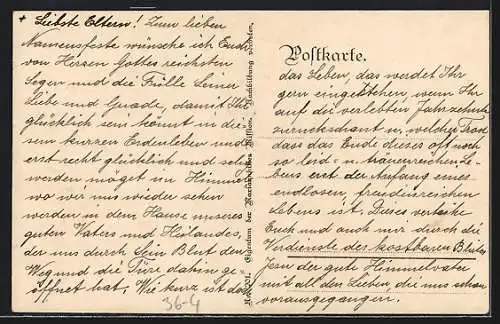 + Liebste Eltern! Zum lieben
Namensfeste wünsche ich Euch
von Herzen Gottes reichsten
Segen und die Fülle Seiner
Liebe und Gnade, damit Ihr
glücklich sein könnt in die-
sem kurzen Erdenleben und
erst recht glücklich und selig
werden möget im Himmel
wo wir uns wieder sehen
werden in dem Hause unseres
guten Vaters und Heilandes,
der uns durch Sein Blut den
Weg und die Türe dahin ge-
öffnet hat. Wie kurz ist doch
36-4
Eigentum der Mission. Nachbildung verboten.
Postkarte.
das Leben, das werdet Ihr
gern eingestehen, wenn Ihr
auf die verlebten Jahrzehnte
zurückschaut u. welcher Trost
dass das Ende dieses oft noch
so leid- u. tränenreichen Le-
bens erst der Anfang eines
endlosen, freudenreichen
Lebens ist. Dieses verleihe
Euch und auch mir durch die
Verdienste des kostbaren Blutes
Jesu der gute Himmelvater
mit all den Lieben, die uns schon
vorausgegangen.